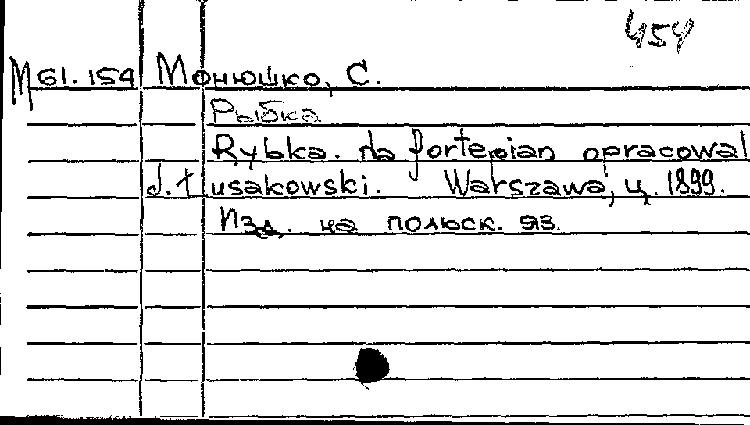 454
М 61.154 Монюшко, С.
Рыбка
Rybka. na fortepian opracował
J. Łusakowski. Warszawa, ц. 1899.
Изд. на польск. яз.